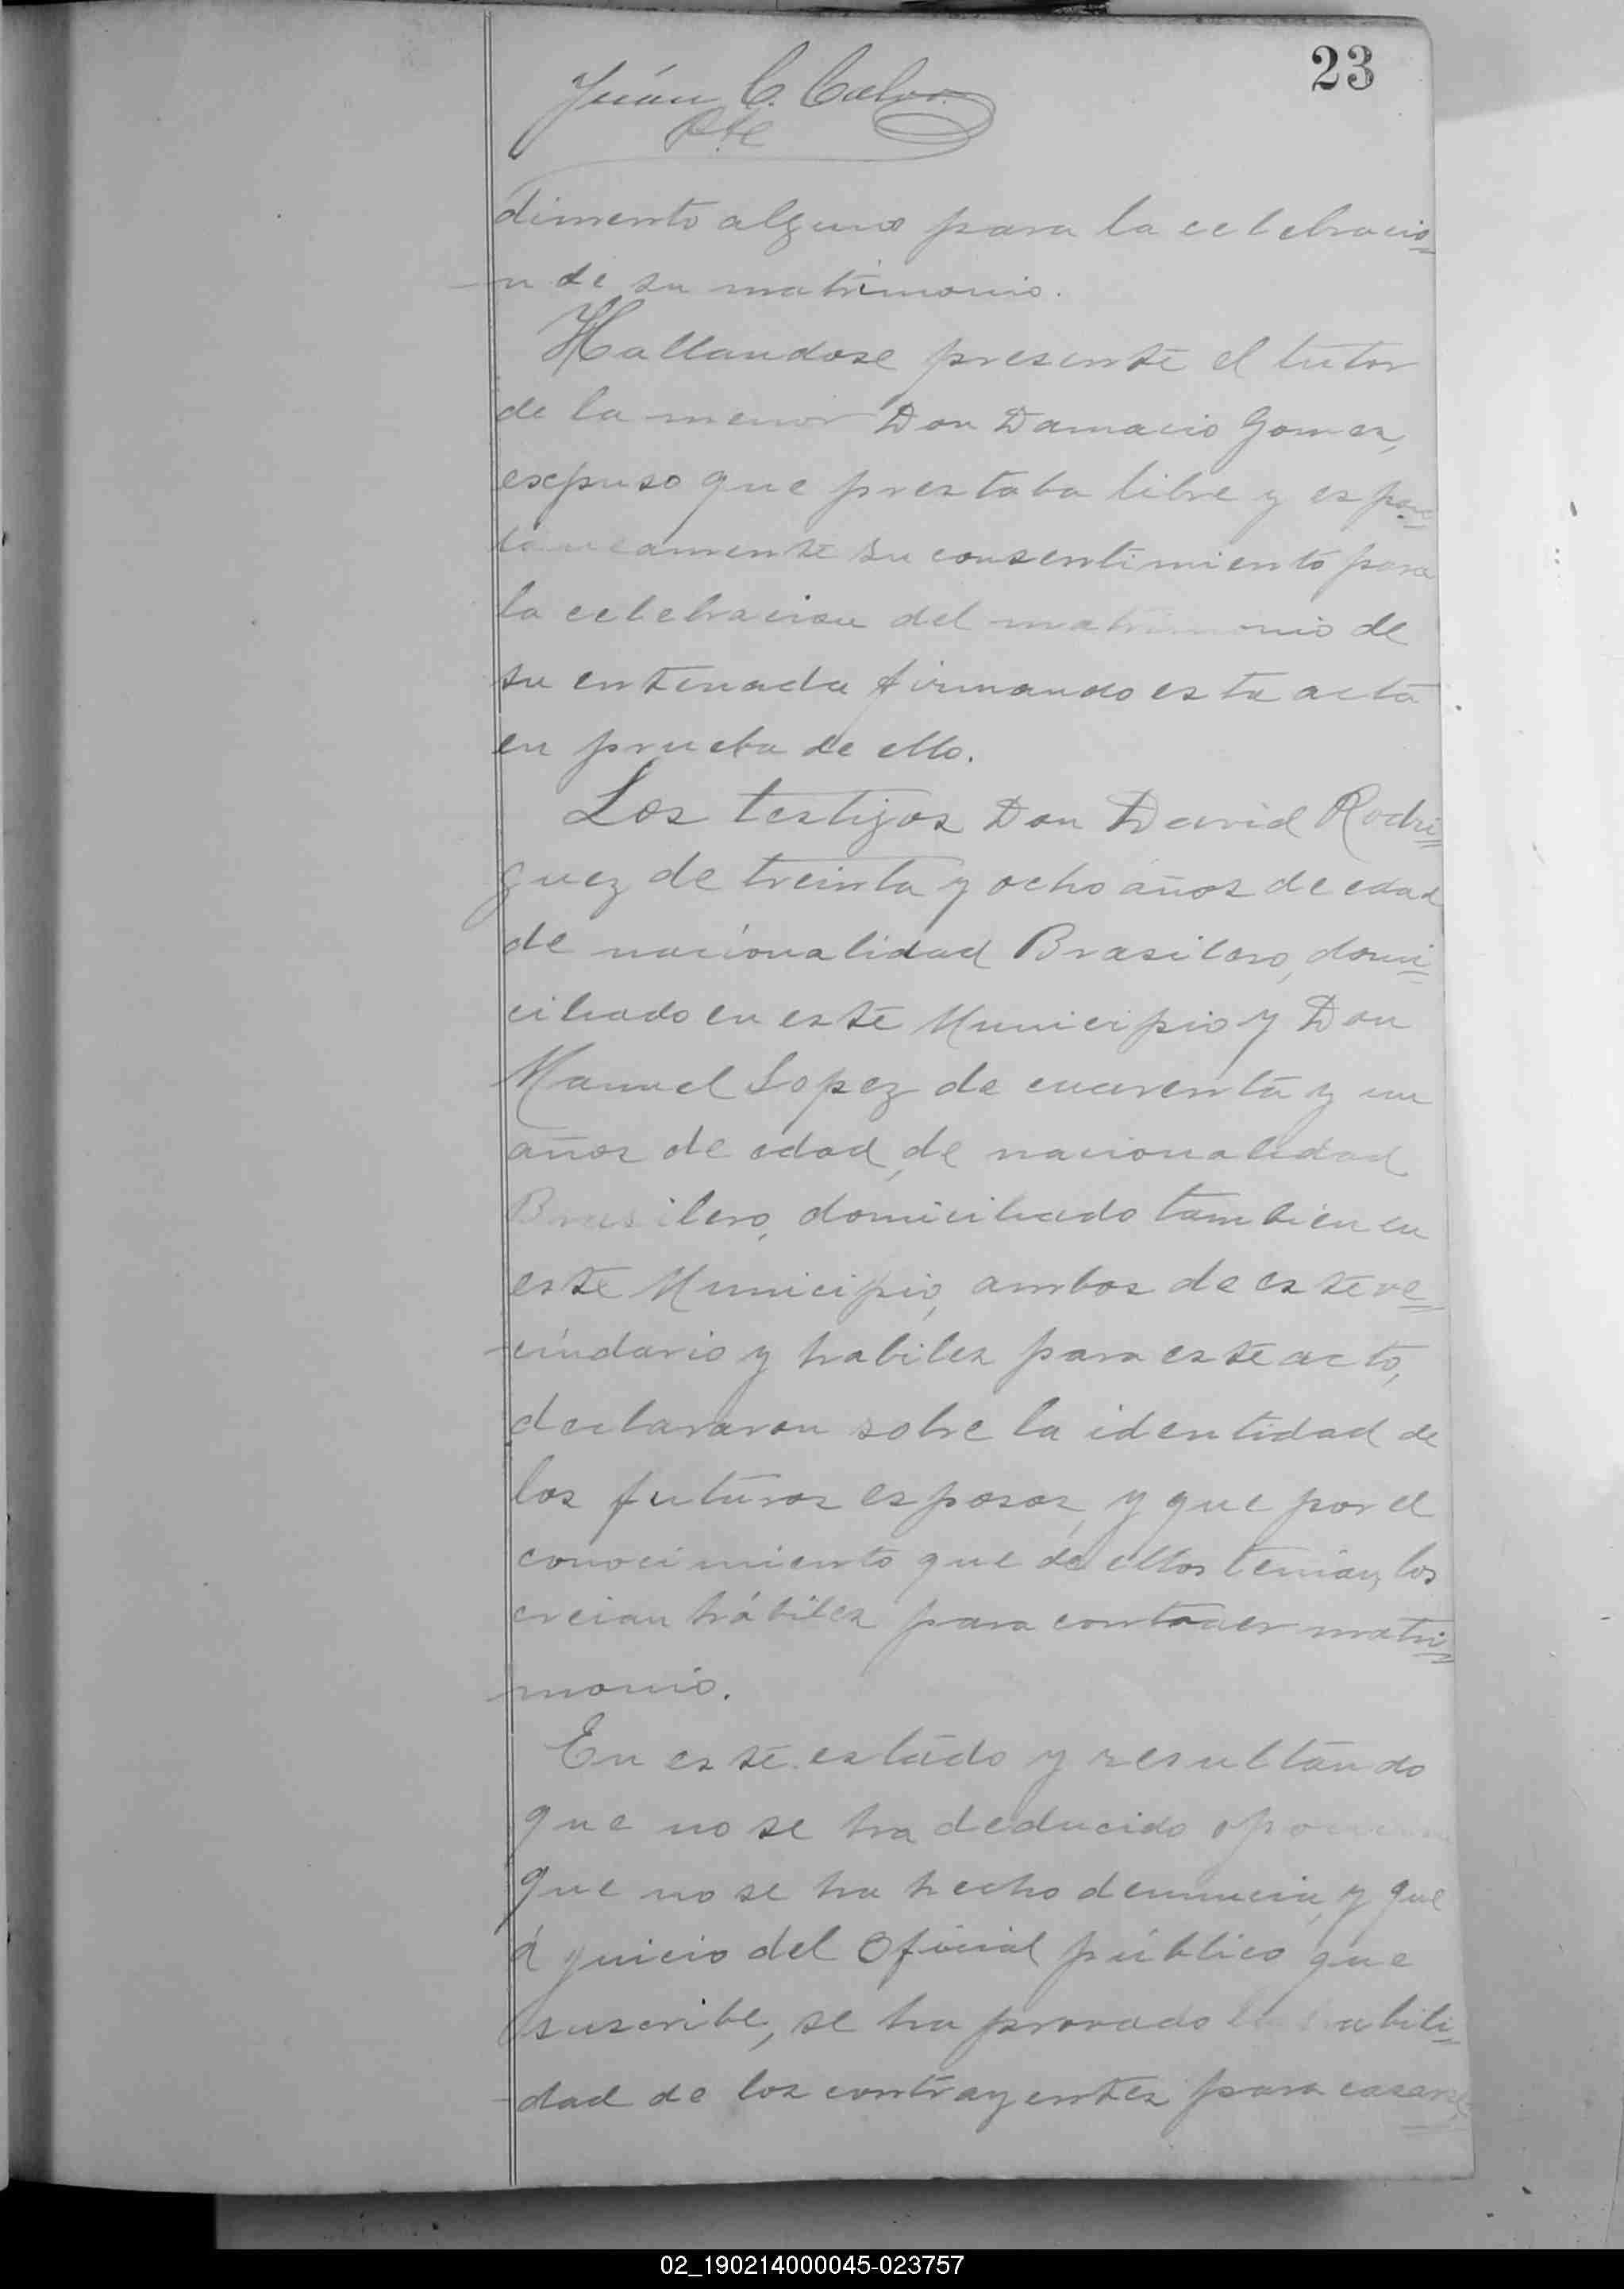 23
Juán C. Calvo
Pte
dimento alguno para la celebracio=
n de su matrimonio.
Hallandose presente el tutor
de la menor Don Damacio Gomez,
expuso que prestaba libre y espon=
taneamente su consentimiento para
la celebracion del matrimonio de
su entenada firmando esta acta
en prueba de ello.
Los testigos Don David Rodri=
guez de treinta y ocho años de edad
de nacionalidad Brasilero, domi=
ciliado en este Municipio y Don
Manuel Lopez de cuarenta y un
años de edad, de nacionalidad
Brasilero, domiciliado tambien en
este Municipio, ambos de este ve=
cindario y habiles para este acto,
declararon sobre la identidad de
los futuros esposos, y que por el
conocimiento que de ellos tenian, los
creian hábiles para contraer matri=
monio.
En este estado y resultando
que no se ha deducido
que no se ha hecho denuncia, y que
á juicio del Oficial público que
suscribe, se ha provado la habili=
dad de los contrayentes para casarse
02_190214000045-023757